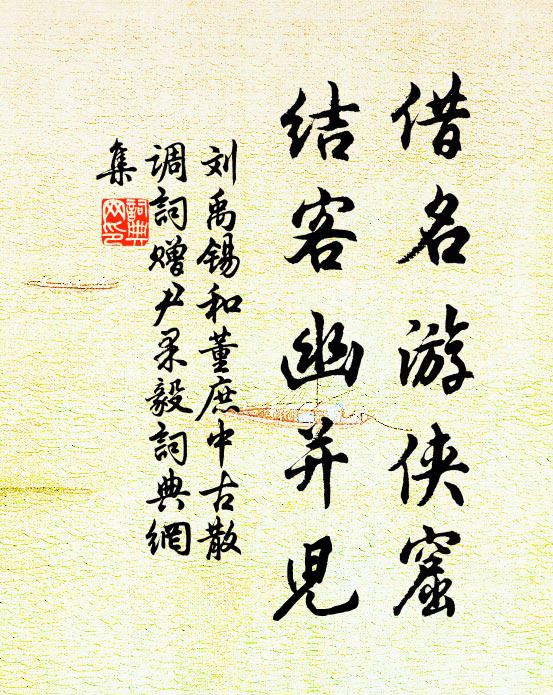 借名游侠窟
结客幽并児
刘禹锡和董庶中古散
调詞赠尹果毅詞典網
集
詞典网印